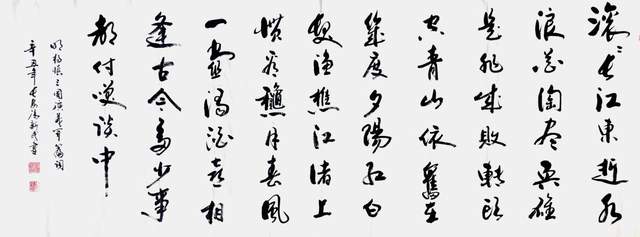 滾〻長江東逝水
浪花淘盡英雄
是非成敗轉頭
空青山依舊在
幾度夕陽紅白
髮漁樵江渚上
慣看龝月春風
一壺濁酒喜相
逢古今多少事
都付笑談中
明楊慎三國演義開篇詞
辛丑年新民書